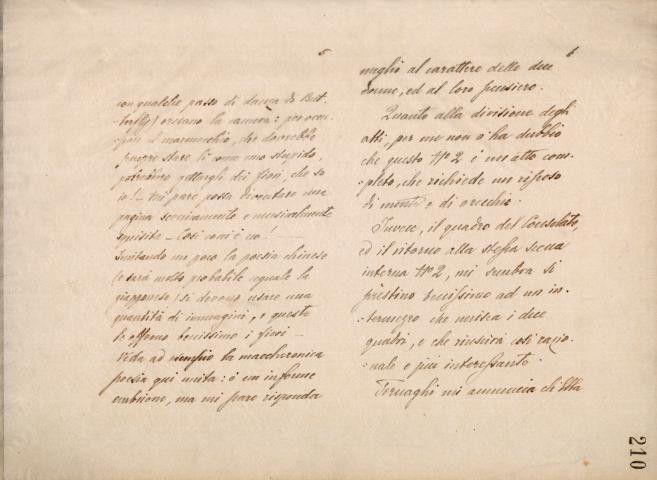 5
con qualche passo di danza di But-
-terfly) ornano la camera: per occu-
-pare il marmocchio, che dovrebbe
sempre stare lì come uno stupido,
potrebbero gettargli dei fiori, che so
io! – Mi pare possa diventare una
pagina scenicamente e musicalmente
squisita – Così com'è no!
Imitando un poco la poesia chinese
(e sarà molto probabile uguale la
giapponese) si devono usare una
quantità di immagini, e queste
le offrono benissimo i fiori –
Veda ad esempio la maccheronica
poesia qui unita: è un informe
embrione, ma mi pare risponda
6
meglio al carattere delle due
donne, ed al loro pensiero.
Quanto alla divisione degli
atti, per me non v'ha dubbio
che questo Nº 2 è un atto com-
-pleto, che richiede un riposo
di mente e di orecchio.
Invece, il quadro del Consolato,
ed il ritorno alla stessa scena
interna Nº 2, mi sembra si
prestino benissimo ad un in-
-termezzo che unisca i due
quadri, e che riuscirà così razio-
-nale e più interessante.
Tornaghi mi annuncia che Ella
210